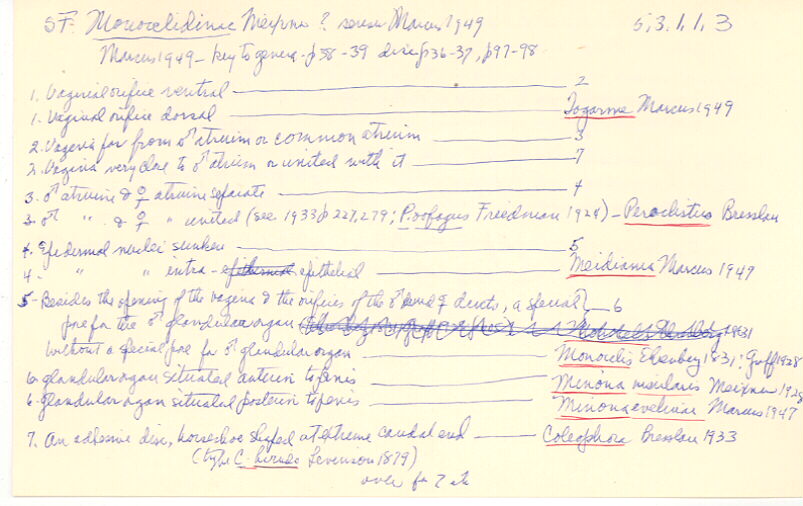 SF. Monocelidinae Meixner ? sensu Marcus 1949 5,3.1.1.3
Marcus 1949 - key to genera - p38-39 disc p36-37, p97-98
1. Vaginal orifice ventral 2
1. Vaginal orifice dorsal Togarma Marcus 1949
2. Vagina far from ♂ atrium or common atrium 3
2. Vagina very close to ♂ atrium or united with it 7
3. ♂ atrium & ♀ atrium separate 4
3. ♂ " & ♀ " united (see 1933 p 227, 279; P. oofagus Friedman 1924) - Peraclistus Bresslau
4. Epidermal nuclei sunken 5
4. " " " intra-epithelial Meidiama Marcus 1949
5- Besides the opening of the vagina & the orifices of the ♂ and ♀ ducts, a special 6
pore for the ♂ glandular organ 1931
without a special pore for ♂ glandular organ Monocelis Ehrenberg 1831; Graff 1928
6. glandular organ situated anterior to penis Minona Meixner 1928
6. glandular organ situated posterior to penis Minona evelinae Marcus 1947
7. An adhesive disc, horseshoe shaped at extreme caudal end Coleophora Bresslau 1933
(type C. hirudo Levensen 1879)
over for 7